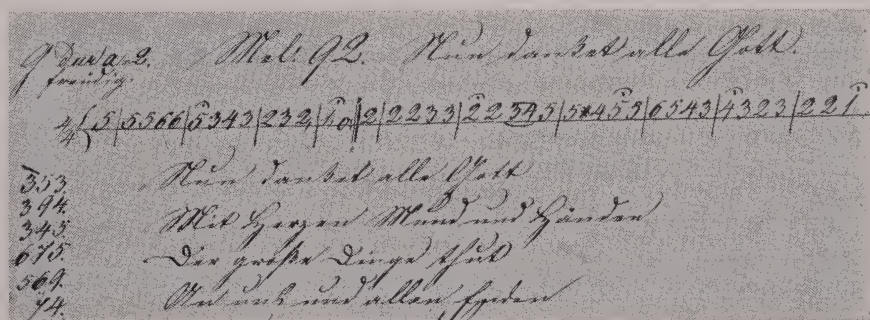 G Dur a 2. Mel: 92. Nun danket alle Gott.
freudig.
4/4 5|5566|5343|232|10||2|2233|22345|5*455|6543|4323|221
353. Nun danket alle Gott
394. Mit Herzen Mund und Händen
345. Der große Dinge thut
675.
569. An uns und allen Enden
74.